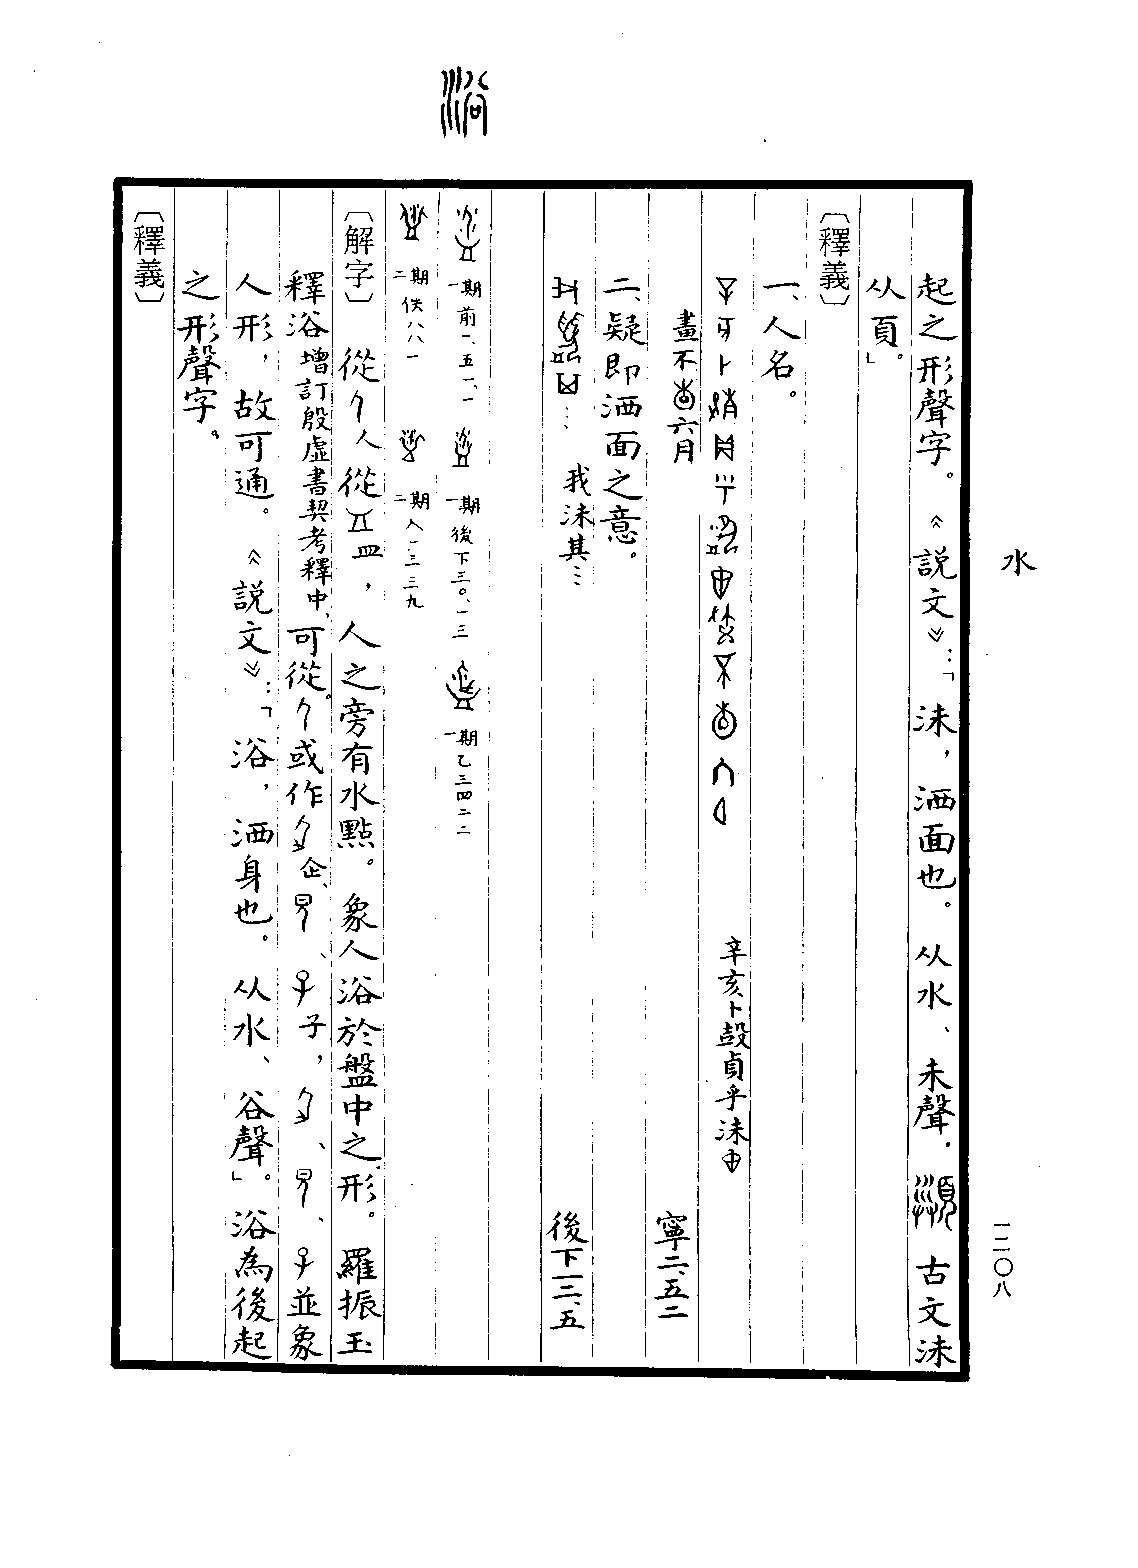 水
一二〇八
起之形聲字。《說文》:「沬，洒面也。从水、未聲。古文沬
从頁。」
〔釋義〕
一、人名。
辛亥卜㱿貞乎沬
畫不六月 寧二、五二
二、疑即洒面之意。
… 我沬其… 後下一二、五
浴
一期前一、五一、一 一期後下三〇、一三 一期乙三四二二
二期佚八八一 二期人一三三九
〔解字〕 從人從皿，人之旁有水點。象人浴於盤中之形。羅振玉
釋浴增訂殷虛書契考釋中，可從。或作企、、子，、、並象
人形，故可通。《說文》:「浴，洒身也。从水、谷聲」。浴為後起
之形聲字。
〔釋義〕